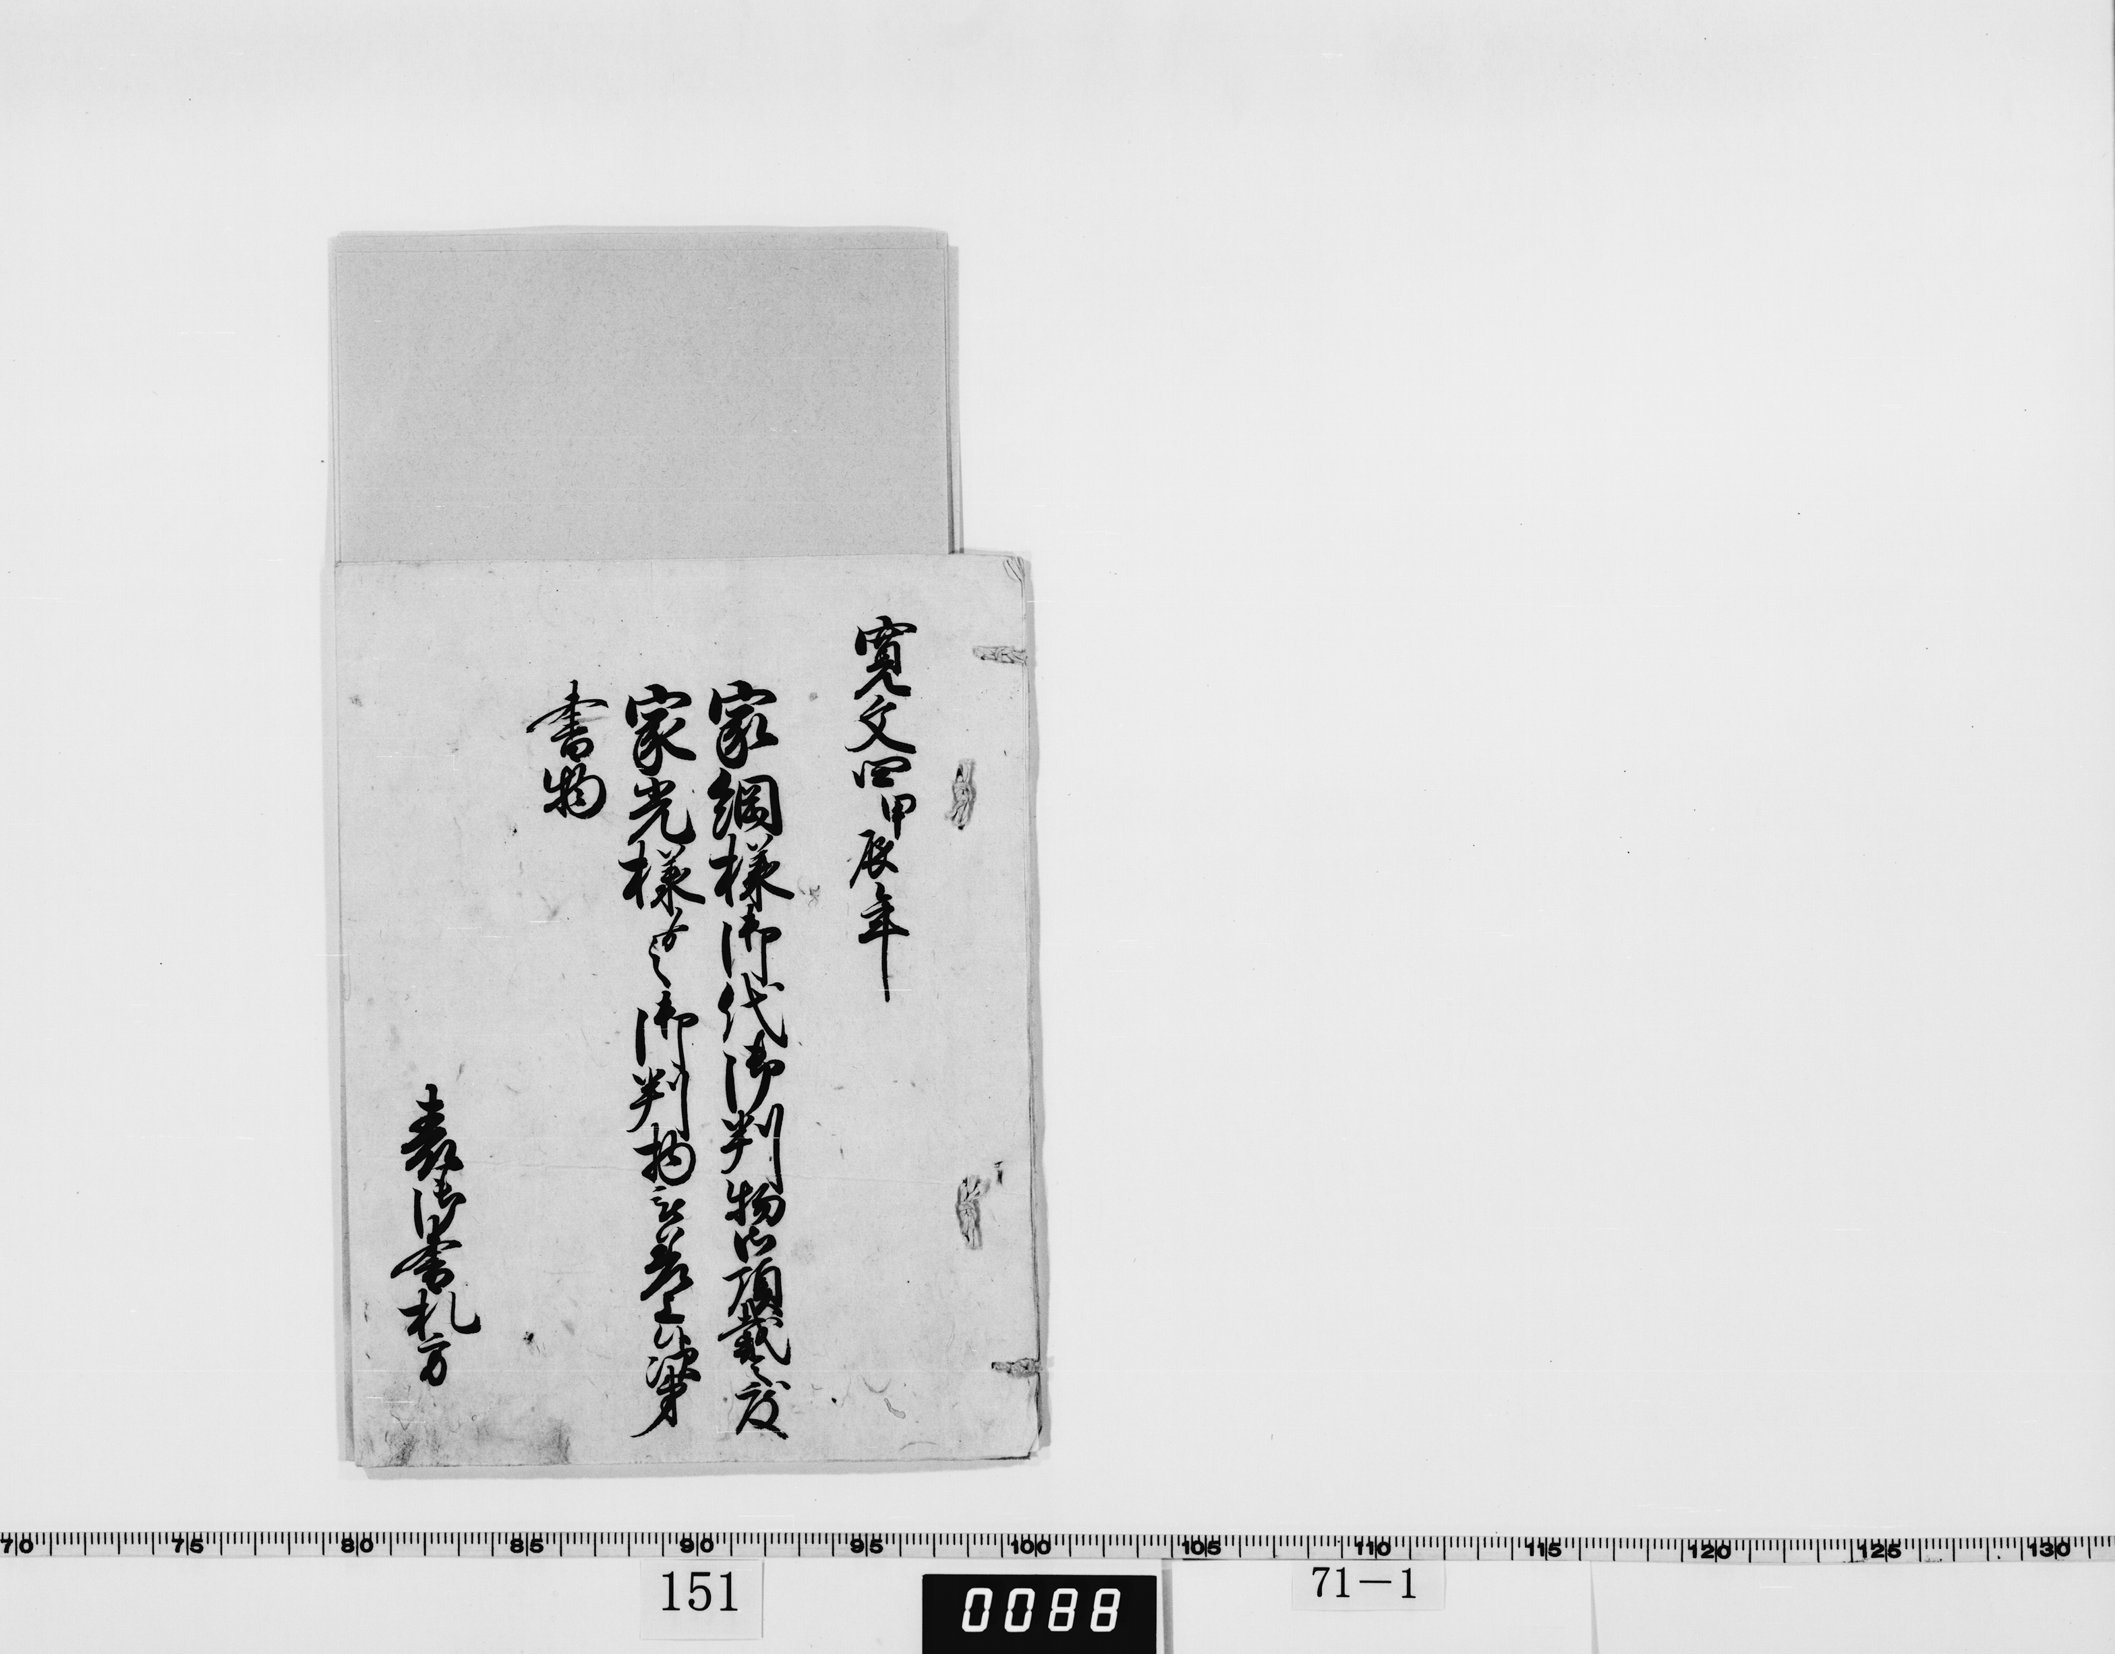 寛文四甲辰年
家綱様御代御判物御頂戴之度
家光様ゟ之御判物被差上候次第
書物
表御書札方
70 75 80 85 90 95 100 105 110 115 120 125 130
151
0088
71-1